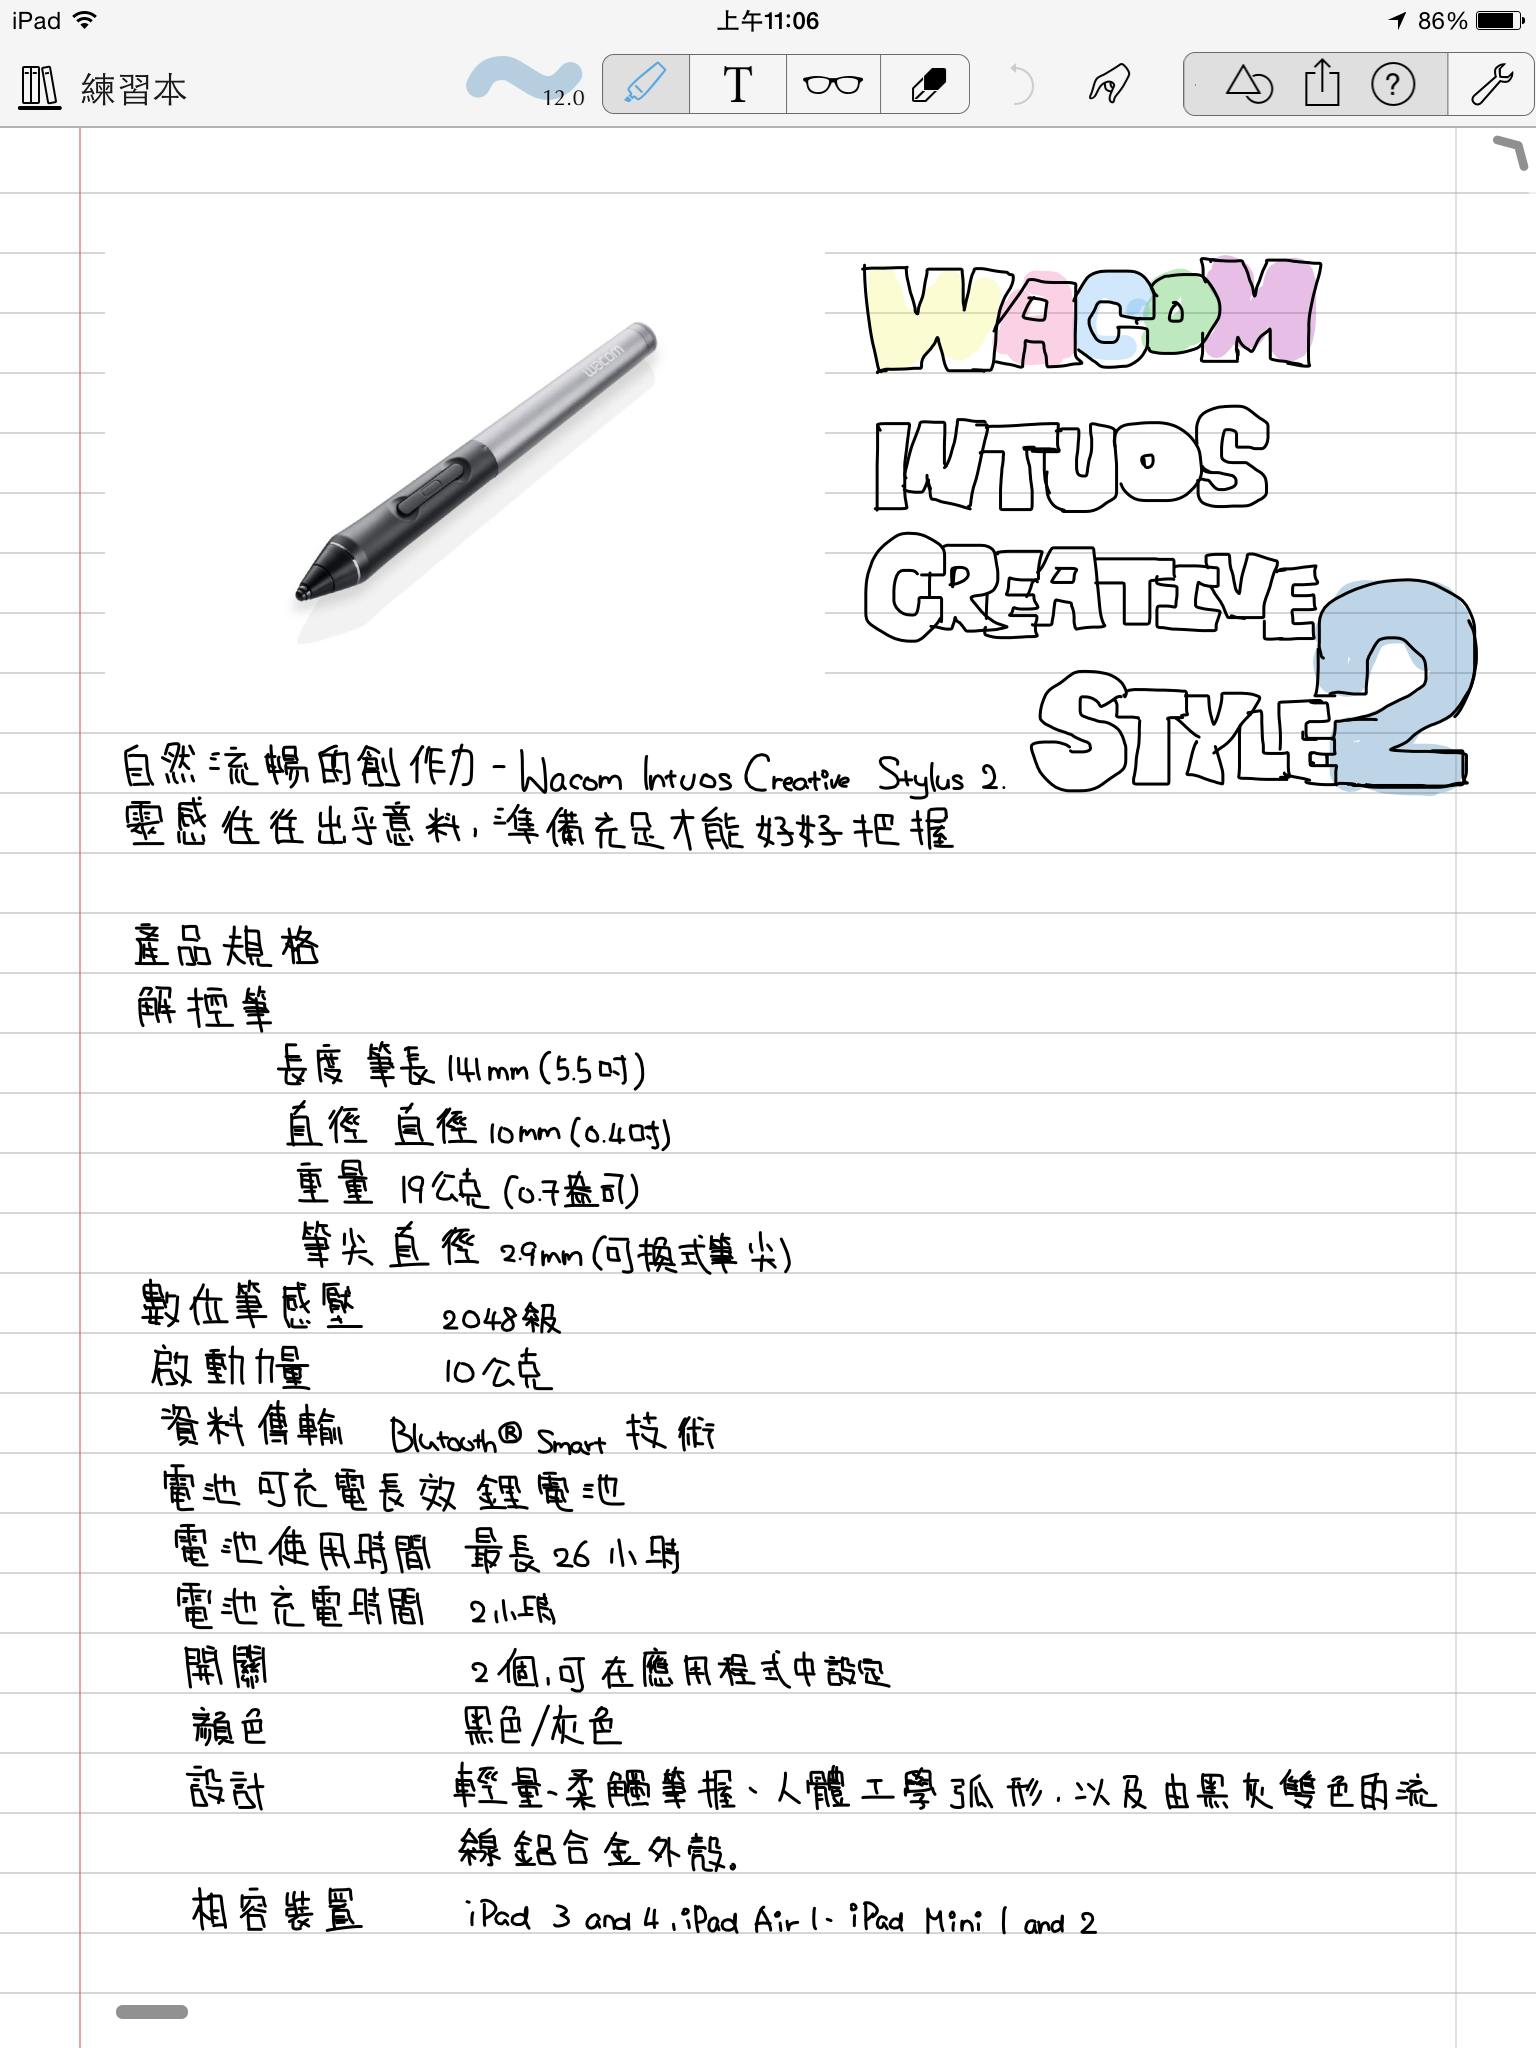 iPad 上午11:06 86%
練習本 12.0 T ?
wacom
WACOM
INTUOS
CREATIVE
STYLE2
自然流暢的創作力 - Wacom Intuos Creative Stylus 2.
靈感往往出乎意料,準備充足才能好好把握
產品規格
觸控筆
長度 筆長 141mm (5.5吋)
直徑 直徑 10mm (0.4吋)
重量 19公克 (0.7盎司)
筆尖直徑 2.9mm (可換式筆尖)
數位筆感壓 2048級
啟動力量 10公克
資料傳輸 Blutooth® Smart 技術
電池 可充電長效 鋰電池
電池使用時間 最長 26 小時
電池充電時間 2小時
開關 2個,可在應用程式中設定
顏色 黑色/灰色
設計 輕量、柔觸筆握、人體工學弧形,以及由黑灰雙色的流
線鋁合金外殼.
相容裝置 iPad 3 and 4,iPad Air 1、iPad Mini 1 and 2